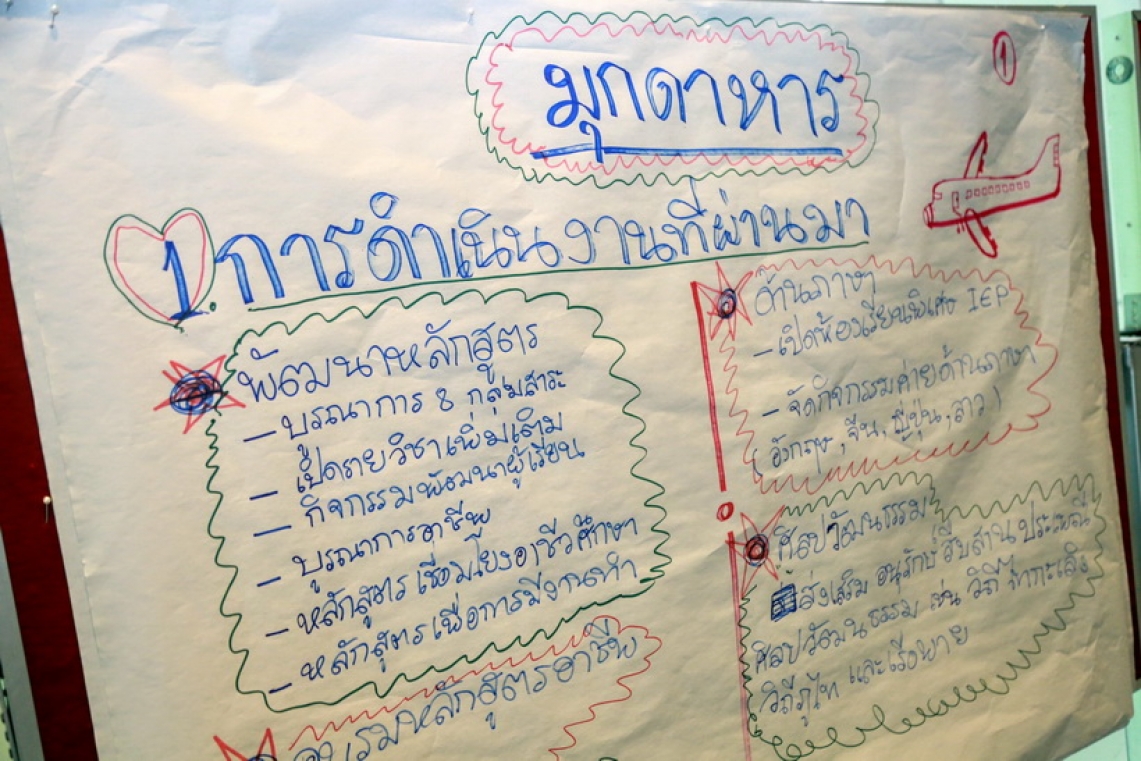 มุกดาหาร
1
1. การดำเนินงานที่ผ่านมา
พัฒนาหลักสูตร
- บูรณาการ 8 กลุ่มสาระ
- เปิดรายวิชาเพิ่มเติม
- กิจกรรมพัฒนาผู้เรียน
- บูรณาการอาชีพ
- หลักสูตรเชื่อมโยงอาชีวศึกษา
- หลักสูตรเพื่อการมีงานทำ
อบรมหลักสูตรอาชีพ
ด้านภาษา
- เปิดห้องเรียนพิเศษ IEP
- จัดกิจกรรมค่ายด้านภาษา
(อังกฤษ, จีน, ญี่ปุ่น, ลาว)
ศิลปวัฒนธรรม
ส่งเสริม อนุรักษ์ สืบสาน ประเพณี
ศิลปวัฒนธรรม เช่น วิถีไทกะเลิง
วิถีภูไท และเรือพาย